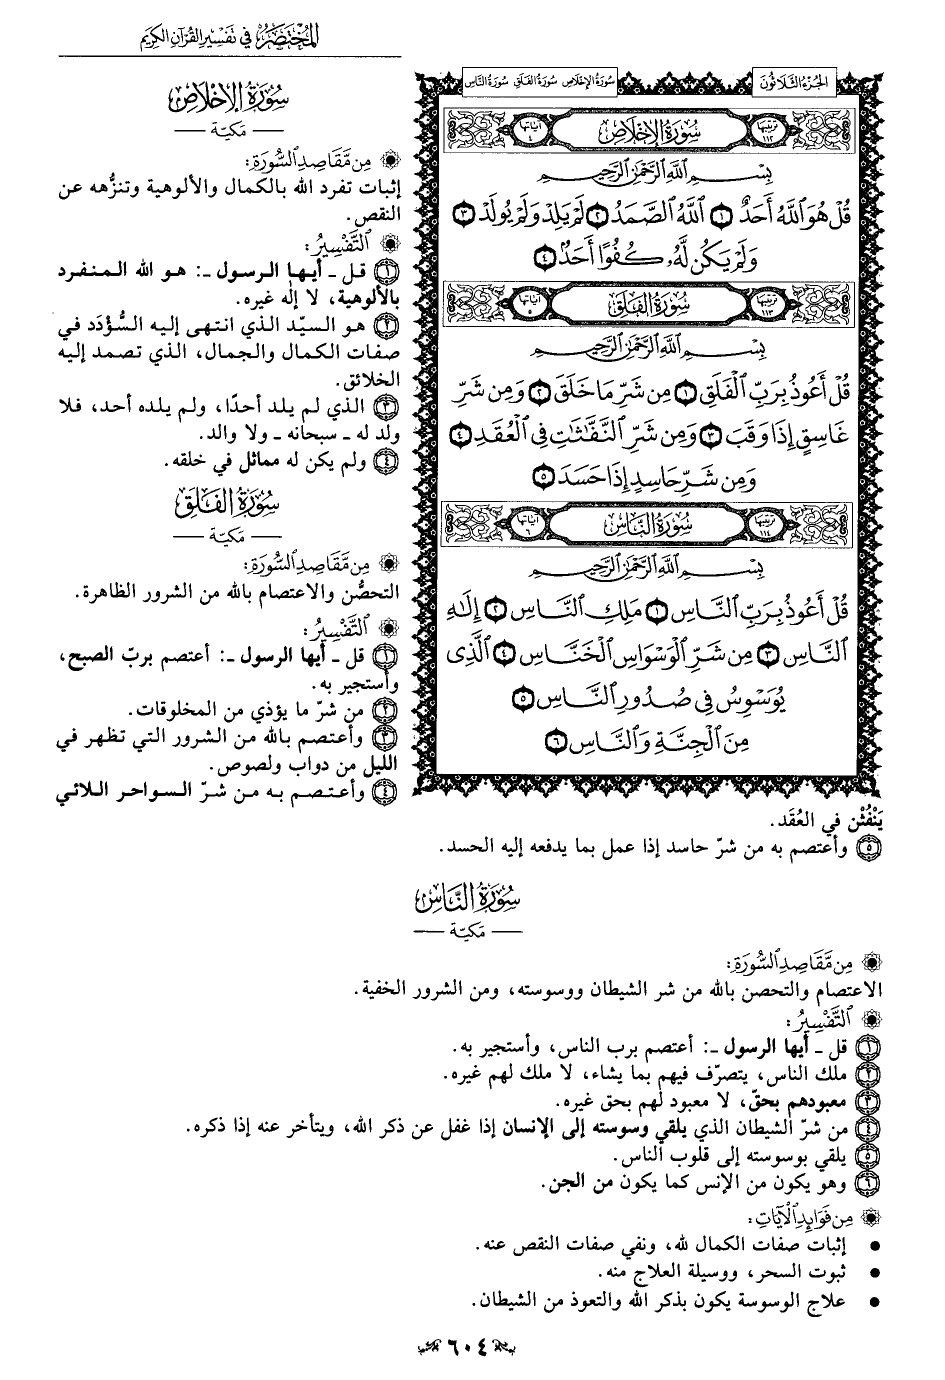 المختصر في تفسير القرآن الكريم
الجزء الثلاثون
سورة الإخلاص سورة الفلق سورة الناس
ترتيبها ١١٢ سُورَةُ الإِخْلَاصِ آياتها ٤
بِسْمِ اللَّهِ الرَّحْمَٰنِ الرَّحِيمِ
قُلْ هُوَ اللَّهُ أَحَدٌ ١ اللَّهُ الصَّمَدُ ٢ لَمْ يَلِدْ وَلَمْ يُولَدْ ٣
وَلَمْ يَكُن لَّهُۥ كُفُوًا أَحَدٌۢ ٤
ترتيبها ١١٣ سُورَةُ الفَلَقِ آياتها ٥
بِسْمِ اللَّهِ الرَّحْمَٰنِ الرَّحِيمِ
قُلْ أَعُوذُ بِرَبِّ الْفَلَقِ ١ مِن شَرِّ مَا خَلَقَ ٢ وَمِن شَرِّ
غَاسِقٍ إِذَا وَقَبَ ٣ وَمِن شَرِّ النَّفَّٰثَٰتِ فِي الْعُقَدِ ٤
وَمِن شَرِّ حَاسِدٍ إِذَا حَسَدَ ٥
ترتيبها ١١٤ سُورَةُ النَّاسِ آياتها ٦
بِسْمِ اللَّهِ الرَّحْمَٰنِ الرَّحِيمِ
قُلْ أَعُوذُ بِرَبِّ النَّاسِ ١ مَلِكِ النَّاسِ ٢ إِلَٰهِ
النَّاسِ ٣ مِن شَرِّ الْوَسْوَاسِ الْخَنَّاسِ ٤ الَّذِي
يُوَسْوِسُ فِي صُدُورِ النَّاسِ ٥
مِنَ الْجِنَّةِ وَالنَّاسِ ٦
سُورَةُ الإِخْلَاصِ
— مَكيّة —
مِن مَّقَاصِدِ السُّورَةِ:
إثبات تفرد الله بالكمال والألوهية وتنزُّهه عن
النقص.
التَّفْسِيرُ:
١ قل ـ أيها الرسول ـ: هو الله المنفرد
بالألوهية، لا إله غيره.
٢ هو السيّد الذي انتهى إليه السُّؤدَد في
صفات الكمال والجمال، الذي تصمد إليه
الخلائق.
٣ الذي لم يلد أحدًا، ولم يلده أحد، فلا
ولد له ـ سبحانه ـ ولا والد.
٤ ولم يكن له مماثل في خلقه.
سُورَةُ الفَلَقِ
— مَكيّة —
مِن مَّقَاصِدِ السُّورَةِ:
التحصُّن والاعتصام بالله من الشرور الظاهرة.
التَّفْسِيرُ:
١ قل ـ أيها الرسول ـ: أعتصم بربّ الصبح،
وأستجير به.
٢ من شرّ ما يؤذي من المخلوقات.
٣ وأعتصم بالله من الشرور التي تظهر في
الليل من دواب ولصوص.
٤ وأعتصم به من شرّ السواحر اللائي
يَنْفُثْن في العُقَد.
٥ وأعتصم به من شرّ حاسد إذا عمل بما يدفعه إليه الحسد.
سُورَةُ النَّاسِ
— مَكيّة —
مِن مَّقَاصِدِ السُّورَةِ:
الاعتصام والتحصن بالله من شر الشيطان ووسوسته، ومن الشرور الخفية.
التَّفْسِيرُ:
١ قل ـ أيها الرسول ـ: أعتصم برب الناس، وأستجير به.
٢ ملك الناس، يتصرّف فيهم بما يشاء، لا ملك لهم غيره.
٣ معبودهم بحقّ، لا معبود لهم بحق غيره.
٤ من شرّ الشيطان الذي يلقي وسوسته إلى الإنسان إذا غفل عن ذكر الله، ويتأخر عنه إذا ذكره.
٥ يلقي بوسوسته إلى قلوب الناس.
٦ وهو يكون من الإنس كما يكون من الجن.
مِن فَوَائِدِ الْآيَاتِ:
• إثبات صفات الكمال لله، ونفي صفات النقص عنه.
• ثبوت السحر، ووسيلة العلاج منه.
• علاج الوسوسة يكون بذكر الله والتعوذ من الشيطان.
٦٠٤